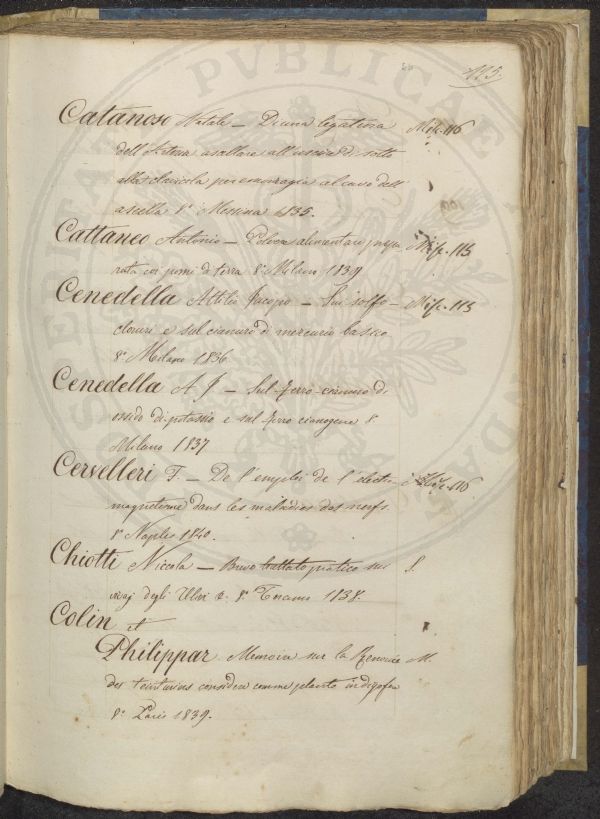 115.
Catanoso Natale — D'una legatura Misc. 116
dell'Arteria ascellare all'uscire di sotto
alla clavicola per emorragia al cavo dell
ascella 8° Messina 1835.
Cattaneo Antonio — Polvere alimentare prepa Misc. 115
rata coi pomi di terra 8° Milano 1839
Cenedella Attilio Jacopo — Sui solfo- Misc. 113
cloruri e sul cianuro di mercurio basico
8° Milano 1836
Cenedella A J — Sul ferro-cianuro di
ossido di potassio e sul ferro cianogene 8°
Milano 1837
Cervelleri F. — De l'emploi de l'électro Misc. 116
magnetisme dans les maladies des nerfs.
8° Naples 1840.
Chiotti Niccola — Breve trattato pratico sui S.
degli Ulivi 8° 1838.
Colin et
Philippar Memoire sur la Renouée M.
des teinturiers considerée comme plante indigofere
8° Paris 1839.